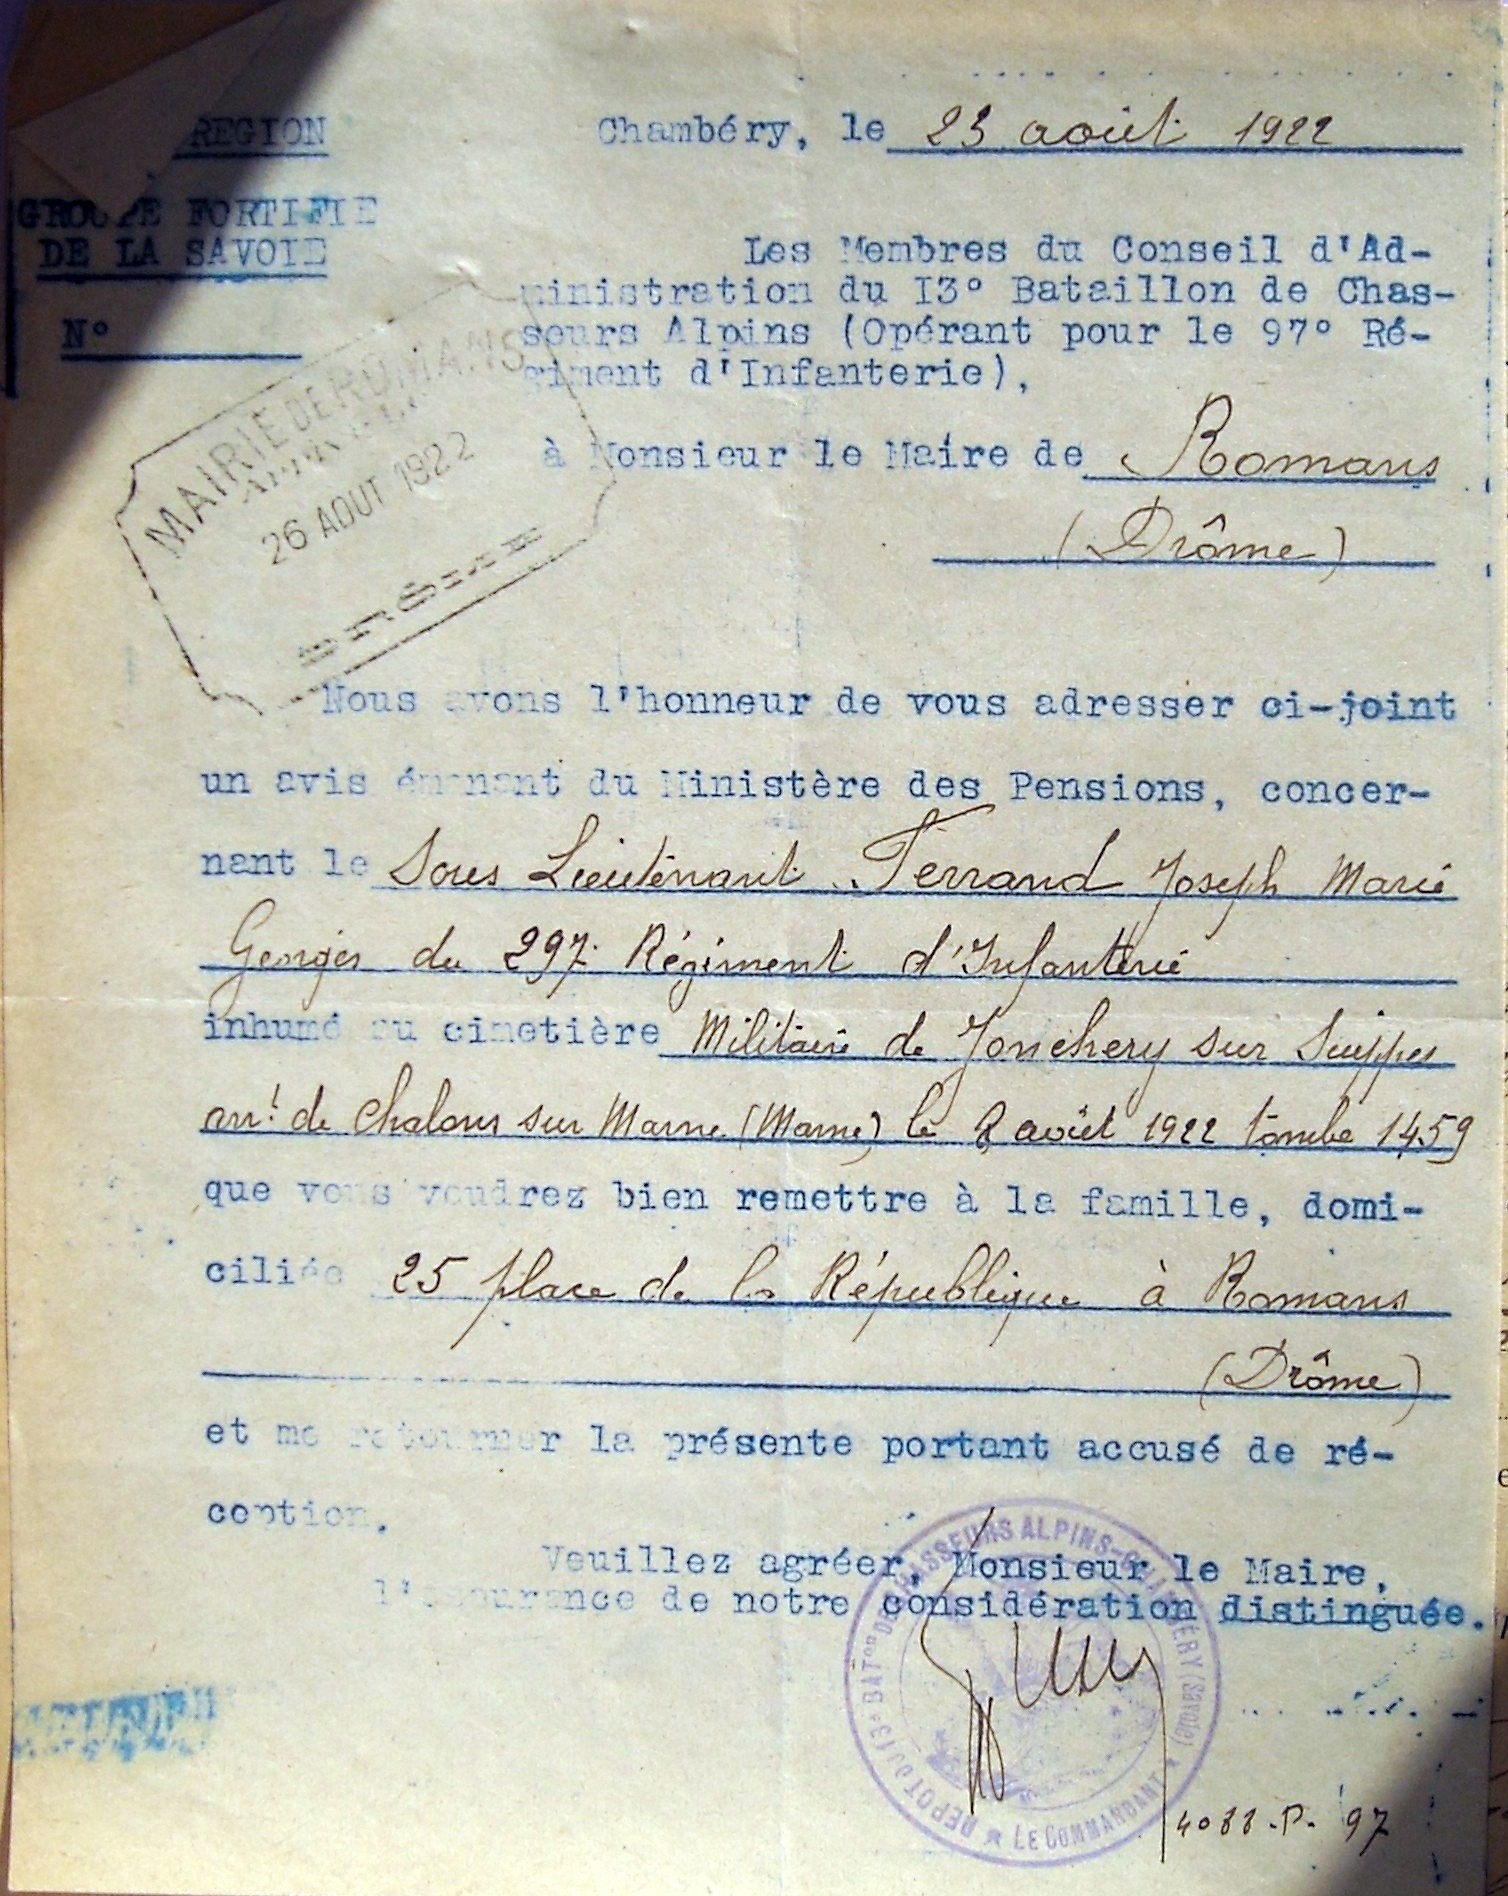 REGION
Chambéry, le 23 août 1922
GROUPE FORTIFIE
DE LA SAVOIE
N°
Les Membres du Conseil d'Ad-
ministration du I3° Bataillon de Chas-
seurs Alpins (Opérant pour le 97° Ré-
giment d'Infanterie),
MAIRIE DE ROMANS
26 AOUT 1922
DRÔME
à Monsieur le Maire de Romans
(Drôme)
Nous avons l'honneur de vous adresser ci-joint
un avis émanant du Ministère des Pensions, concer-
nant le Sous Lieutenant Ferrand Joseph Marie
Georges du 297e Régiment d'Infanterie
inhumé au cimetière Militaire de Jonchery sur Suippes
arrt de Chalons sur Marne (Marne) le 2 août 1922 tombe 1459
que vous voudrez bien remettre à la famille, domi-
ciliée 25 place de la République à Romans
(Drôme)
et me retourner la présente portant accusé de ré-
ception.
Veuillez agréer, Monsieur le Maire,
l'assurance de notre considération distinguée.
DEPOT DU 13e BATon DE CHASSEURS ALPINS-CHAMBÉRY (Savoie)
★ LE COMMANDANT ★
4088.P. 97